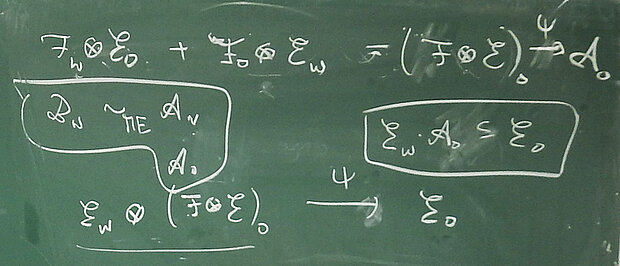 ℱ_w ⊗ ℰ_0 + ℱ_0 ⊗ ℰ_w = (ℱ ⊗ ℰ)_0 →^ψ 𝒜_0
ℬ_N ~_ME 𝒜_N
𝒜_0
ℰ_w · 𝒜_0 ⊆ ℰ_0
ℰ_w ⊗ (ℱ ⊗ ℰ)_0 →^ψ ℰ_0